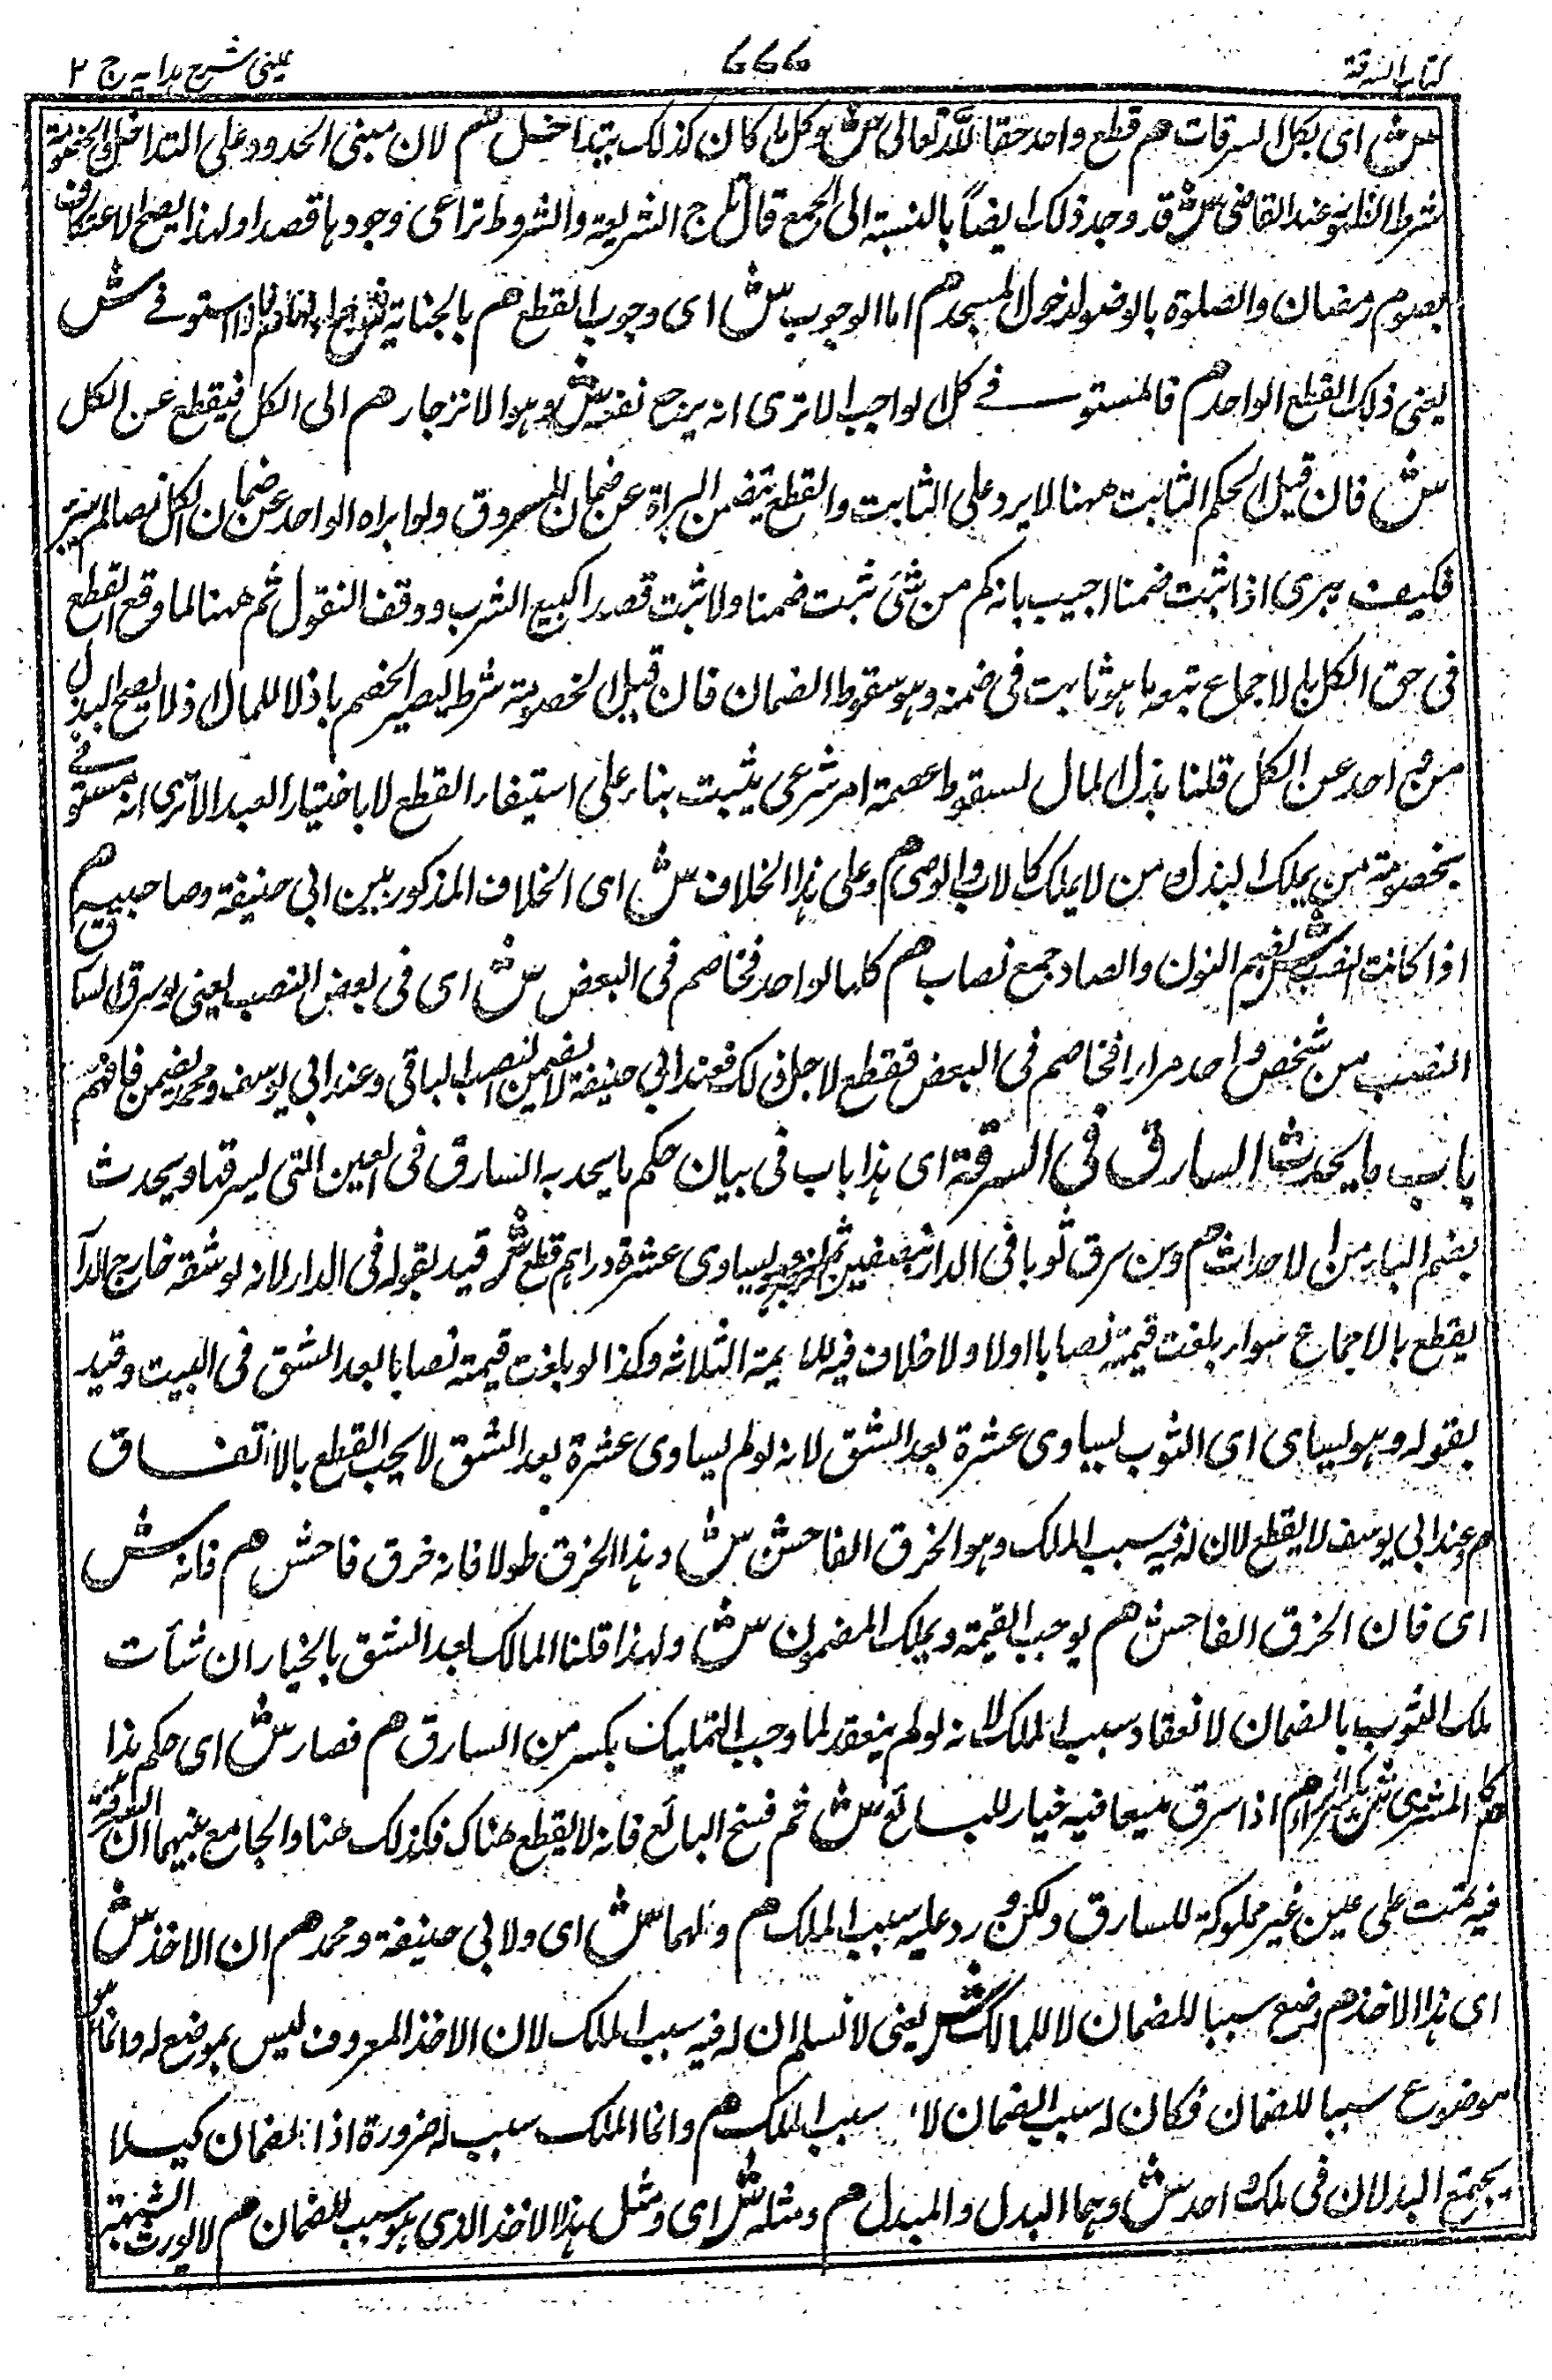 كتاب السرقة ٦٦٦ عينى شرح هدايه ج ٢
ش اى بكل السرقات هم قطع واحد حقا لله تعالى ش وكل ما كان كذلك يتداخل هم لان مبنى الحدود على التداخل والخصومة
شرط للظهور عند القاضى ش قد وجد ذلك ايضاً بالنسبة الى الجمع قال تاج الشريعة والشروط تراعى وجودها قصدا ولهذا يصح الاعتكاف
بصوم رمضان والصلوة بالوضوء لدخول المسجد هم اما الوجوب ش اى وجوب القطع هم بالجناية فاذا استوفى ش
يعنى ذلك القطع الواحد هم فالمستوفى كل الواجب الا ترى انه يرجع نفعه ش وهو الانزجار هم الى الكل فيقطع عن الكل
ش فان قيل الحكم الثابت ههنا لا يرد على الثابت والقطع يتضمن البراة عن ضمان المسروق ولو ابراه الواحد عن ضمان الكل نصا لم يبر
فكيف يبرى اذا ثبت ضمنا اجيب بانه كم من شئى ثبت ضمنا ولا ثبت قصدا كبيع الشرب ووقف النقول ثم ههنا لما وقع القطع
فى حق الكل بالاجماع تبعه ما هو ثابت فى ضمنه وهو سقوط الضمان فان قيل الخصومة شرط ليصير الخصم باذلا للمال اذ لا يصح البذل
من احد عن الكل قلنا بذل المال لسقوط عصمة امر شرعى يثبت بناء على استيفاء القطع لا باختيار العبد الا ترى انه مستوفى
بخصومة من يملك البذل ومن لا يملك كالاب والوصى هم وعلى هذا الخلاف ش اى الخلاف المذكور بين ابى حنيفة وصاحبيه هم
اذا كانت النصب ش بضم النون والصاد جمع نصاب هم كلها لواحد فخاصم فى البعض ش اى فى بعض النصب يعنى لو سرق السارق
النصب من شخص واحد مرارا فخاصم فى البعض فقطع لاجل ذلك فعند ابى حنيفة لا يضمن النصب الباقى وعند ابى يوسف ومحمد يضمن فافهم
باب ما يحدث السارق فى السرقة اى هذا باب فى بيان حكم ما يحدثه السارق فى العين التى يسرقها ويحدث
بضم الياء من الاحداث هم ومن سرق ثوبا فى الدار نصفين ثم اخرجه وهو يساوى عشرة دراهم قطع ش قيد بقوله فى الدار لانه لو شقه خارج الدار
يقطع بالاجماع سواء بلغت قيمته نصابا اولا ولا خلاف فيه للايمة الثلاثه وكذا لو بلغت قيمته نصابا بعد الشق فى البيت وقيد
بقوله وهو يساوى اى الثوب يساوى عشرة بعد الشق لانه لو لم يساوى عشرة بعد الشق لا يجب القطع بالاتفاق
هم وعند ابى يوسف لا يقطع لان له فيه سبب الملك وهو الخرق الفاحش ش وهذا الخرق طولا فانه خرق فاحش هم فانه ش
اى فان الخرق الفاحش هم يوجب القيمة ويملك المضمون ش ولهذا قلنا المالك بعد الشق بالخيار ان شأت
ملك الثوب بالضمان لانعقاد سبب الملك لانه لو لم ينعقد لما وجب التمليك بكسر من السارق هم فصار ش اى حكم هذا
كالمشترى ش بكسر الراء هم اذا سرق مبيعا فيه خيار للبائع ش ثم فسخ البائع فانه لا يقطع هناك فكذلك هنا والجامع بينهما ان السرقة
فيه تمت على عين غير مملوكة للسارق ولكن ورد عليه سبب الملك هم ولهما ش اى ولابى حنيفة ومحمد هم ان الاخذ ش
اى هذا الاخذ هم وضع سببا للضمان لا للملك ش يعنى لا نسلم ان له فيه سبب الملك لان الاخذ المعروف ليس بموضع له وانما هو
موضوع سببا للضمان فكان له سبب الضمان لا سبب الملك هم وانما الملك سبب له ضرورة اذا الضمان كيلا
يجتمع البدلان فى ملك واحد ش وهما البدل والمبدل هم ومثله ش اى ومثل هذا الاخذ الذى هو سبب للضمان هم لا يورث الشبهة